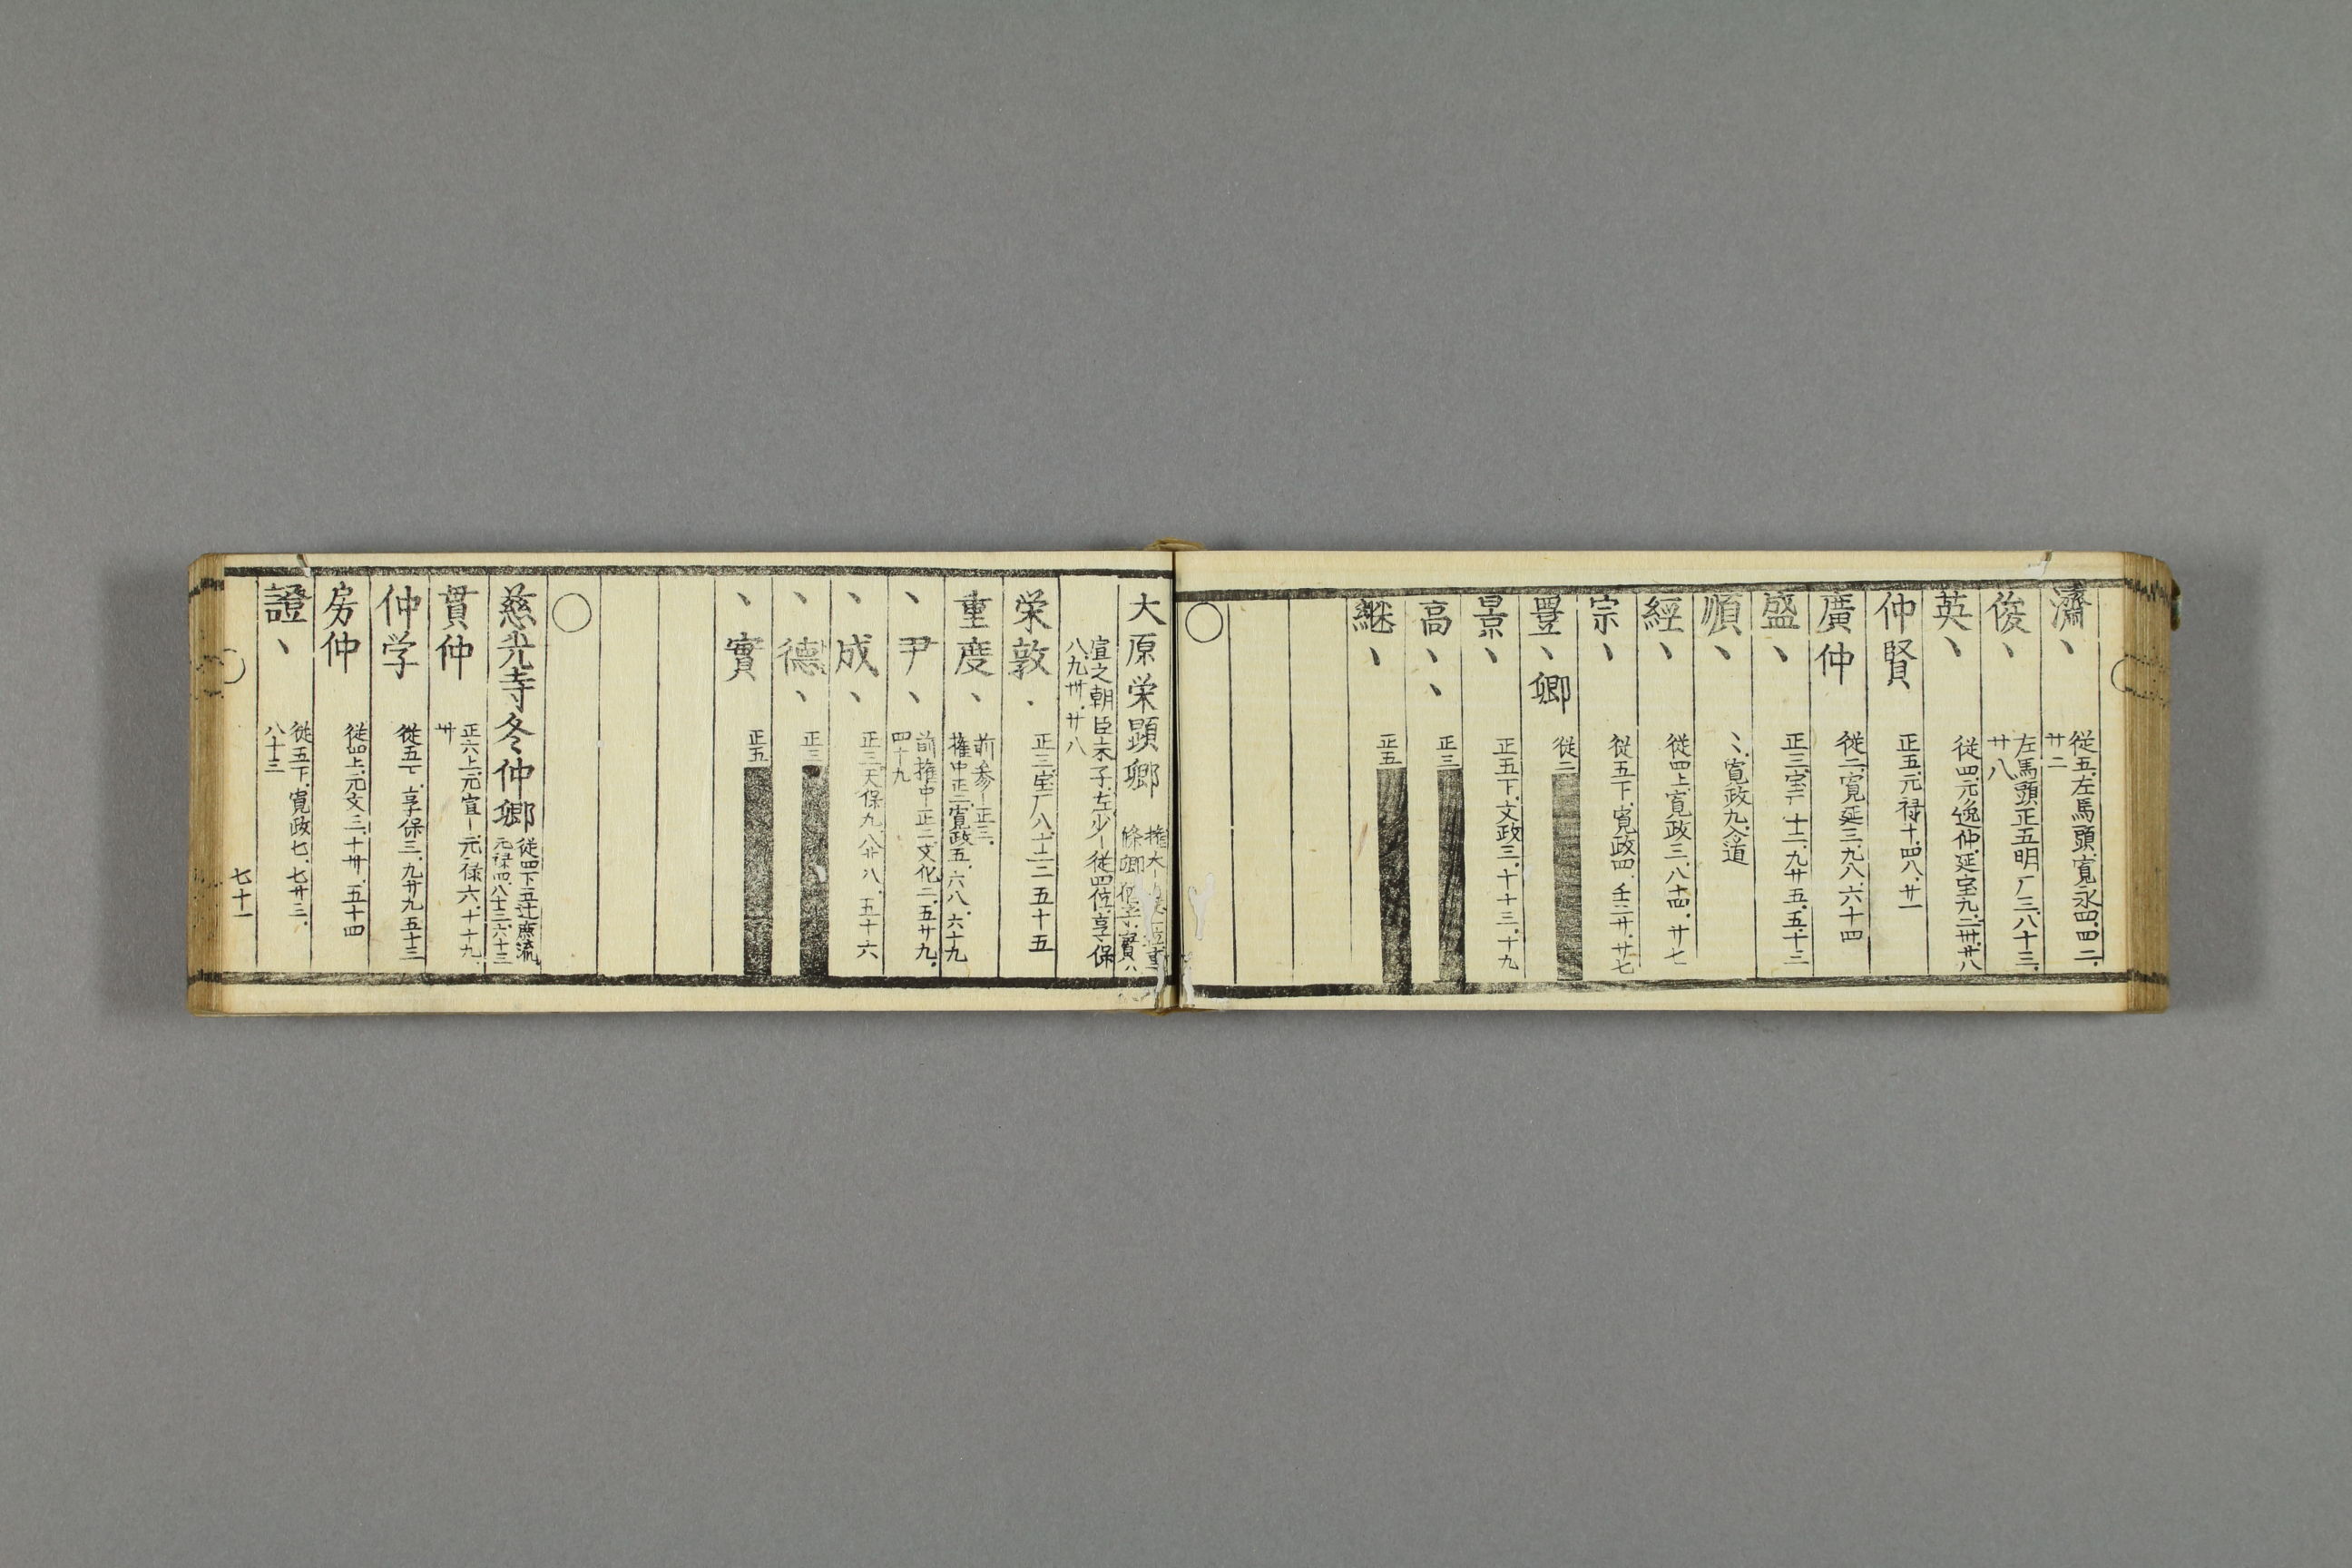 濟、 従五、左馬頭、寛永四、四二、
廿二
俊、 左馬頭正五明厂三、八十三、
廿八
英、 従四、元逸仲、延宝九、二卅、卅八
仲賢 正五、元禄十、四八、廿一
廣仲 従二、寛延三、九八、六十四
盛、 正三、宝厂十二、九廿五、五十三
順、 〻、寛政九入道
經、 従四上、寛政三、八十四、廿七
宗、 従五下、寛政四、壬二廿、廿七
豊、卿 従二
景、 正五下、文政三、十十三、十九
高、、 正三
継、 正五
○
大原栄顕卿 権大
條卿
宣之朝臣末子、左少ー従四位、享保
八、九卅、廿八
栄敦、 正三、宝厂八、十二二五十五
重度、 前参ー正三、
権中正二、寛政五、六八、六十九
、尹、 前権中ー正二、文化二、五廿九、
四十九
、成、 正三、天保九、八廿八、五十六
、德、 正三
、實 正五
○
慈光寺冬仲卿 従四下、五辻庶流
元禄四、八十三、六十三
貫仲 正六上、元宣ー元禄六、十十九、
卅
仲学 従五下、享保三、九廿九五十三
房仲 従四上、元文三、十卅、五十四
證、 従五下、寛政七、七廿三、
八十三
七十一